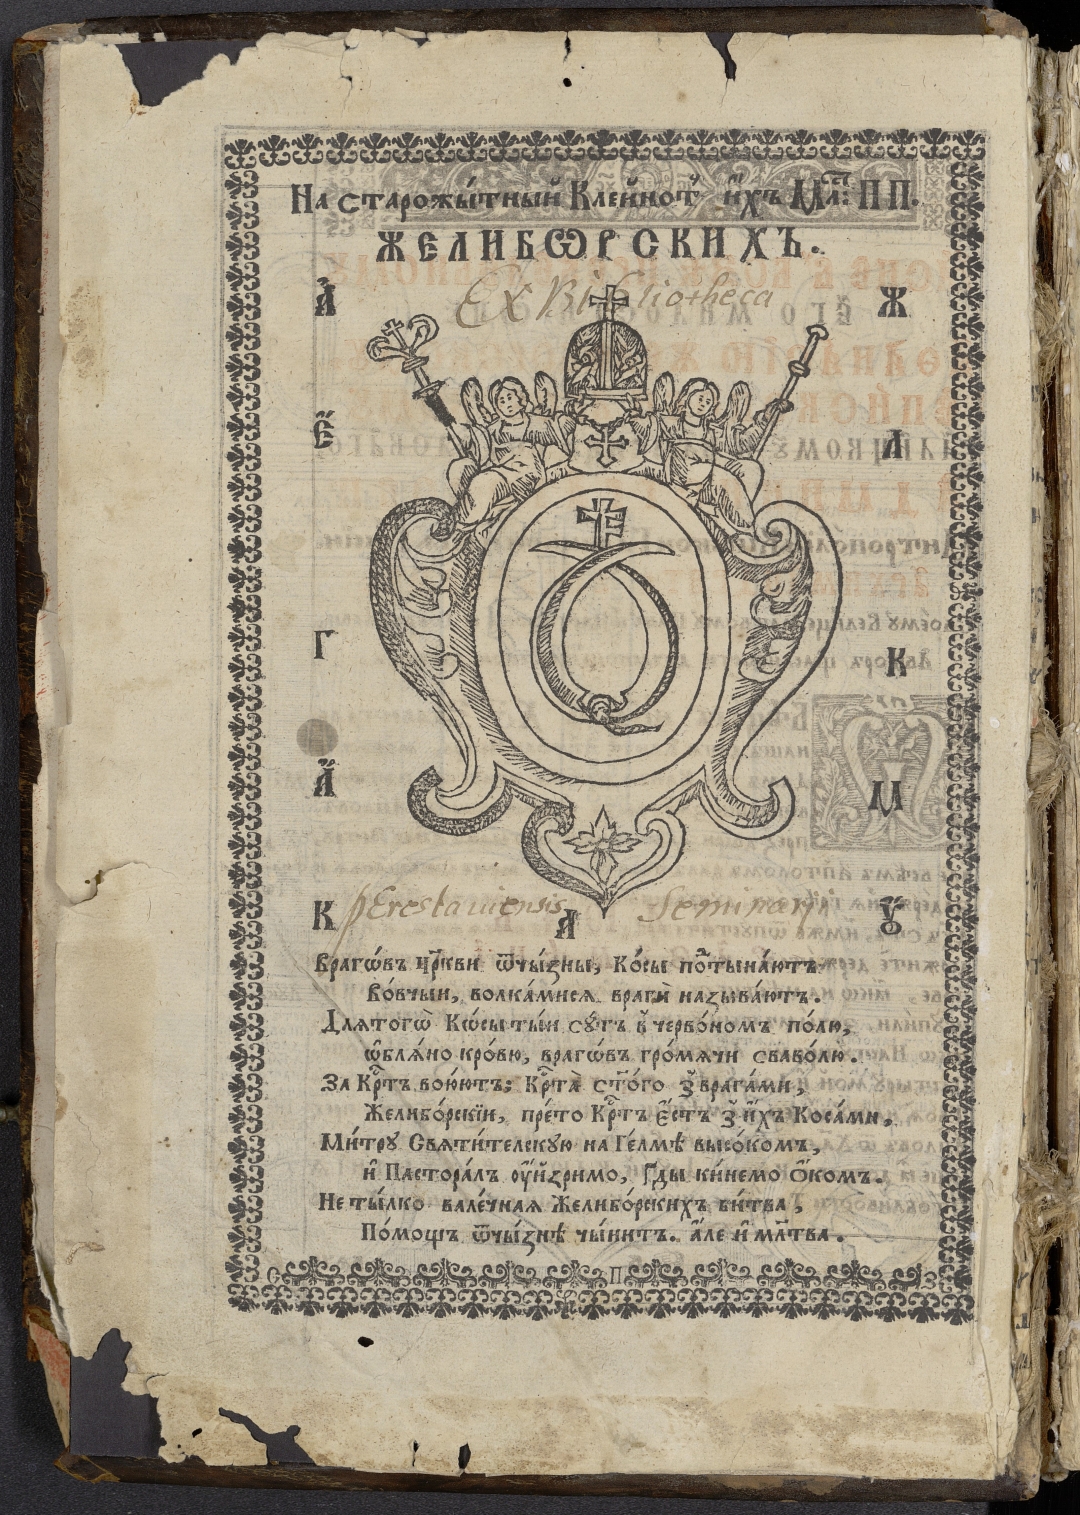 На старожы́тный Клейнотъ и҆́хъ Мл҃: ПП.
ЖЕЛИБѠРСКИХЪ.
Ex Bibliotheca
А҆ Ж
Е҆ Л
Г К
А҆ М
К А Ѹ
Perestaviensis Seminarij
Врагѡ́въ цр҃кви ѿчы́зны, Ко́сы по́тына́ютъ
Во́вчыи, волка́мися врагѝ называ́ютъ.
Длятогѡ̀ Кѡ́сы ты́и су́тъ в черво́номъ по́лю,
ѡ҆бля́но кро́вю, врагѡ́въ гро́мячи свабо́лю.
За Кр҃тъ вою́ютъ: Кр҃та̀ ст҃о́го з̾ врага́ми,
Желибо́рскїи, пре́то Кр҃тъ е҆́стъ з̾ и҆́хъ Коса́ми,
Ми́тру Святи́телскую на Ге́лмѣ высо́комъ,
и҆ Пастора́лъ ѹ҆́йзримо, Гды ки́немо О҆́комъ.
Не ты́лко вале́чная Желибо́рскихъ би́тва,
По́мощъ ѿчы́знѣ чы́нитъ. а҆́ле и҆ мл҃тва.